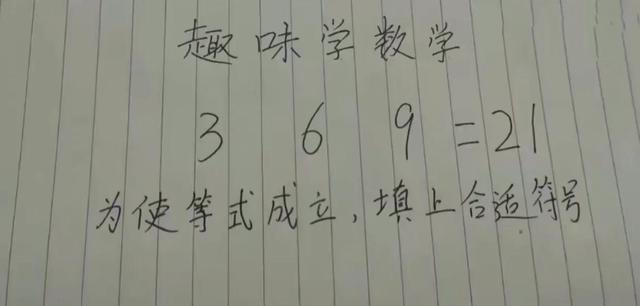 趣味学数学
3 6 9 = 21
为使等式成立，填上合适符号